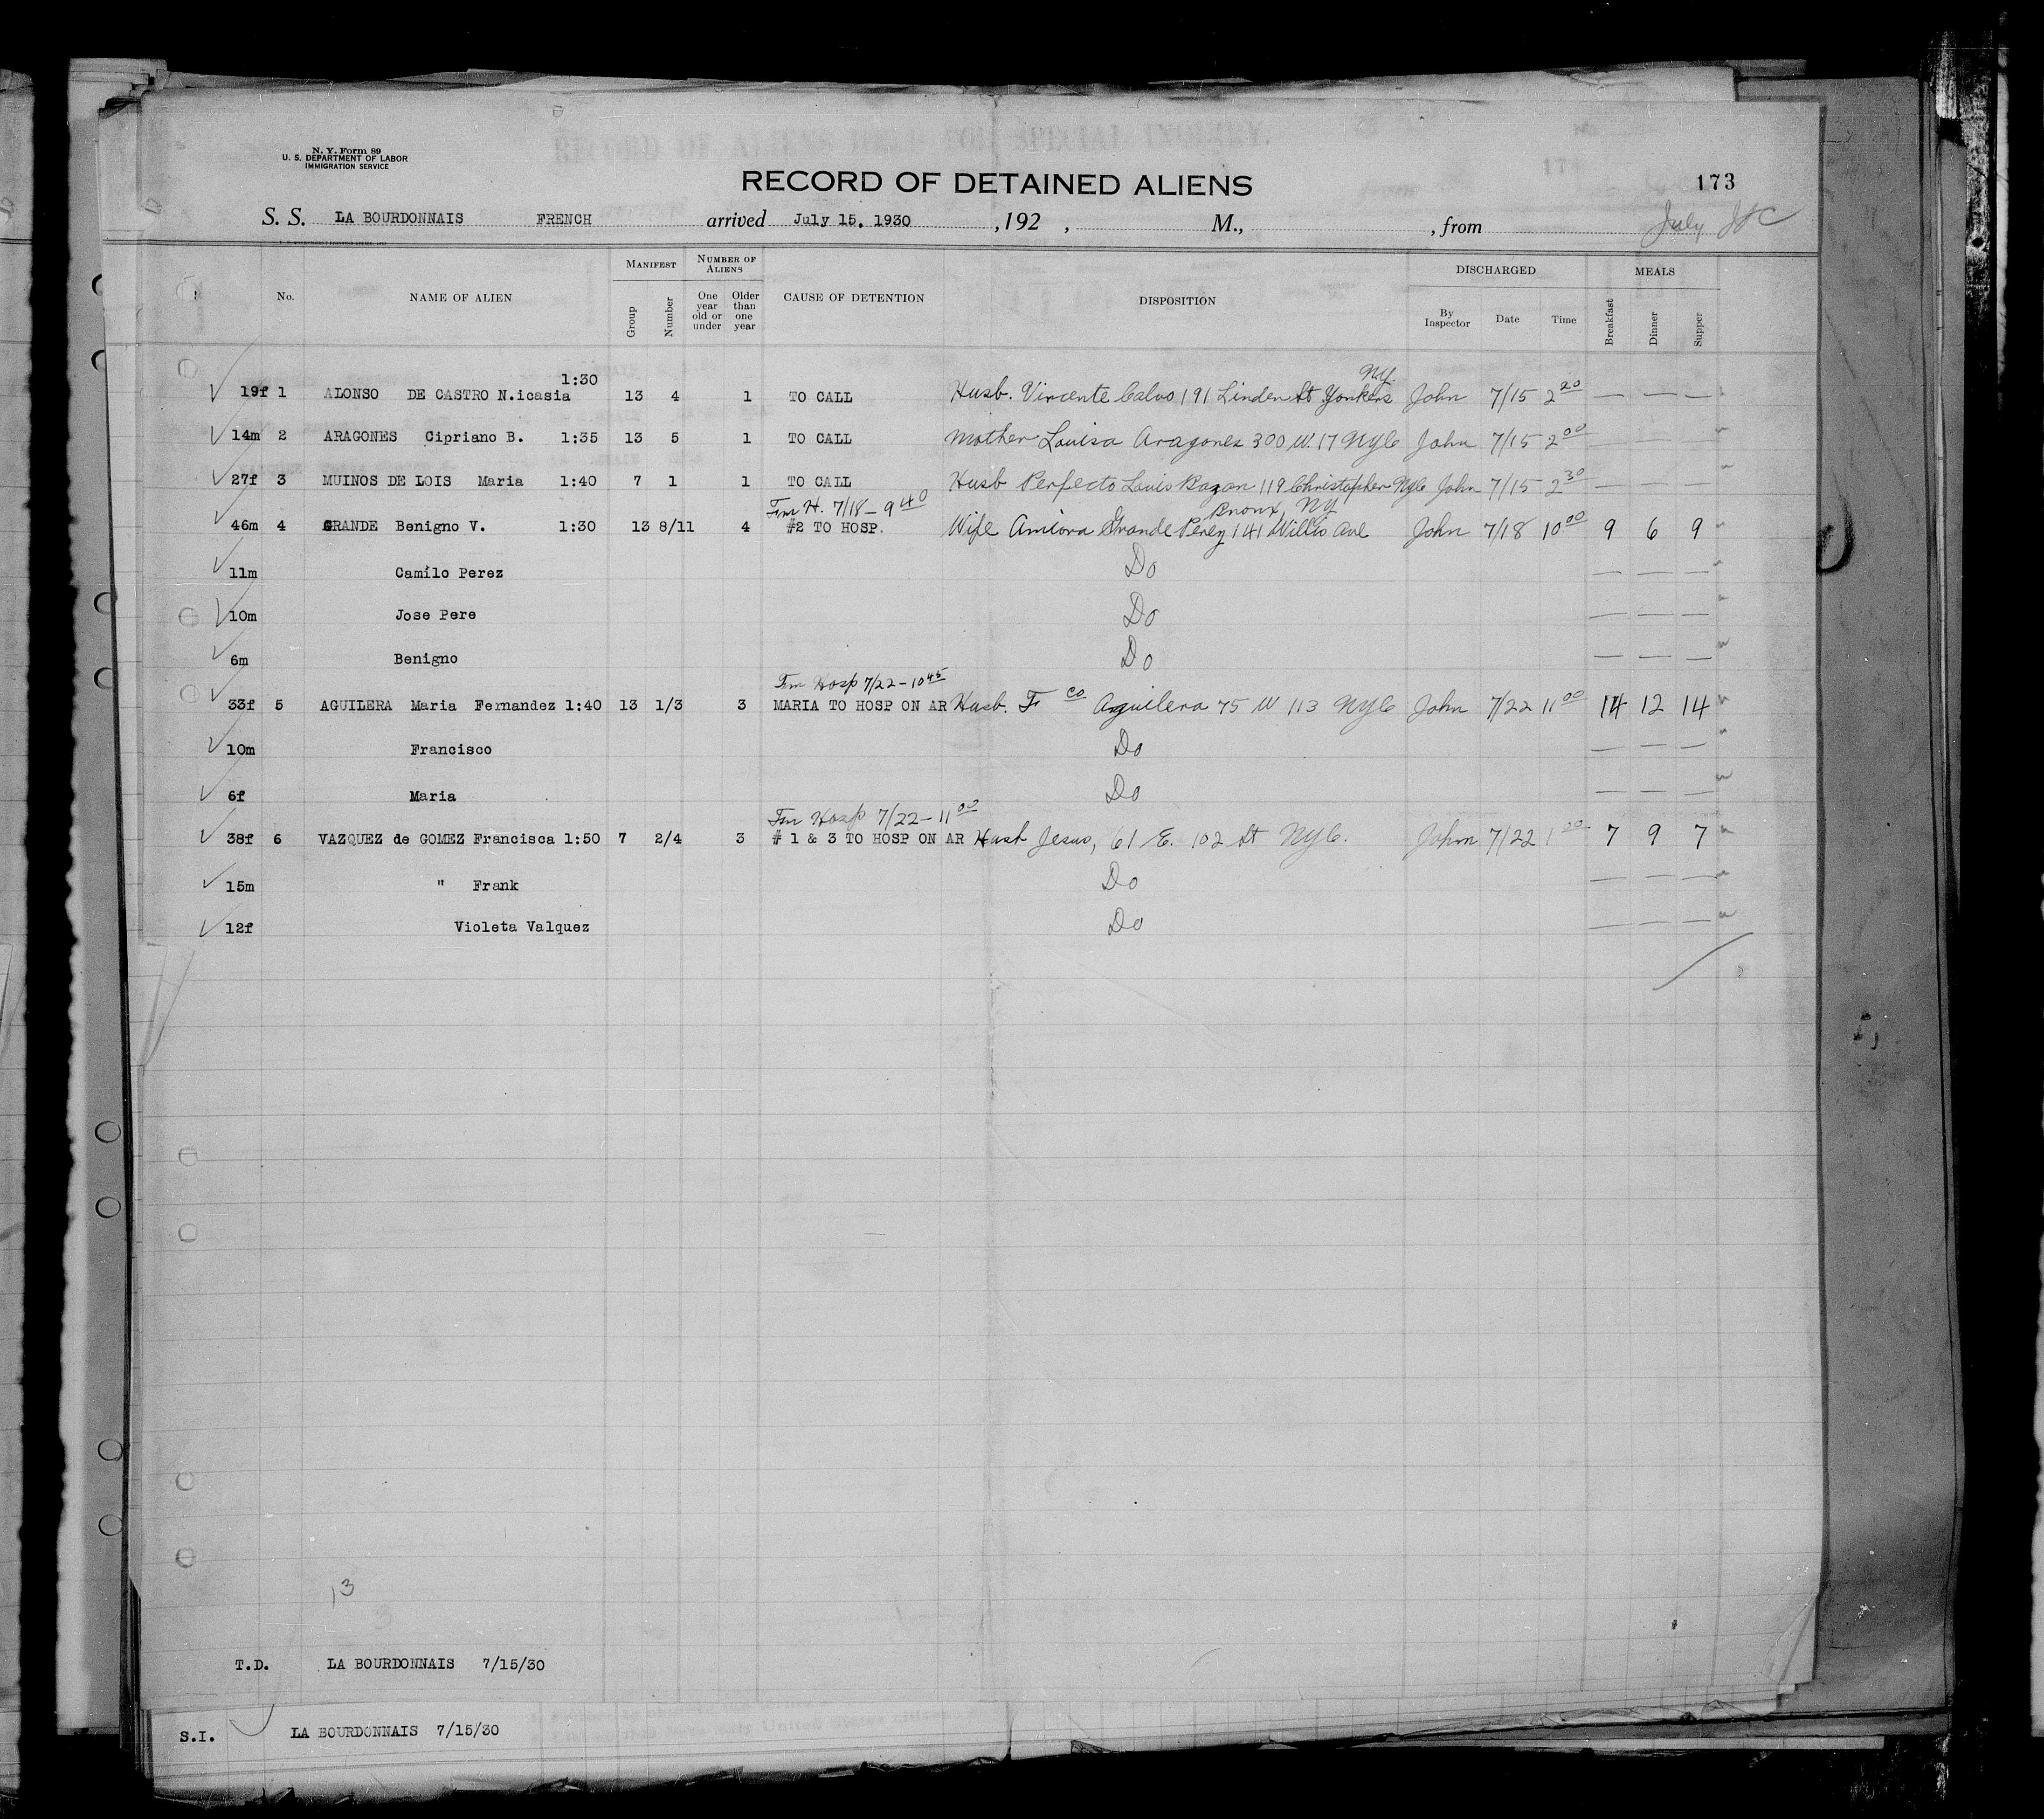 N. Y. Form 89
U. S. DEPARTMENT OF LABOR
IMMIGRATION SERVICE
RECORD OF ALIENS HELD FOR SPECIAL INQUIRY.
RECORD OF DETAINED ALIENS
173
S. S. LA BOURDONNAIS FRENCH arrived July 15, 1930 , 192 , M., , from July
No. NAME OF ALIEN MANIFEST Group Number NUMBER OF ALIENS One year old or under Older than one year CAUSE OF DETENTION DISPOSITION DISCHARGED By Inspector Date Time MEALS Breakfast Dinner Supper
1:30 N.Y.
19f 1 ALONSO DE CASTRO N.icasia 13 4 1 TO CALL Husb. Vincente Calvo 191 Linden St Yonkers John 7/15 2 20 — — —
14m 2 ARAGONES Cipriano B. 1:35 13 5 1 TO CALL Mother Louisa Aragones 300 W. 17 NYC John 7/15 2 00
27f 3 MUINOS DE LOIS Maria 1:40 7 1 1 TO CALL Husb Perfecto Louis Bazan 119 Christopher NYC John 7/15 2 30 — — —
Fm H. 7/18 – 9 40 Bronx, NY
46m 4 GRANDE Benigno V. 1:30 13 8/11 4 #2 TO HOSP. Wife Grande Perez 141 Willis Ave John 7/18 10 00 9 6 9
11m Camilo Perez Do — — —
10m Jose Pere Do — — —
6m Benigno Do — — —
Fm Hosp 7/22 – 10 45
33f 5 AGUILERA Maria Fernandez 1:40 13 1/3 3 MARIA TO HOSP ON AR Husb. Fco Aguilera 75 W 113 NYC John 7/22 11 00 14 12 14
10m Francisco Do — — —
6f Maria Do — — —
Fm Hosp 7/22 – 11 00
38f 6 VAZQUEZ de GOMEZ Francisca 1:50 7 2/4 3 # 1 & 3 TO HOSP ON AR Husb Jesus, 61 E. 102 St NYC. John 7/22 1 20 7 9 7
15m " Frank Do — — —
12f Violeta Valquez Do — — —
13
T.D. LA BOURDONNAIS 7/15/30
S.I. LA BOURDONNAIS 7/15/30